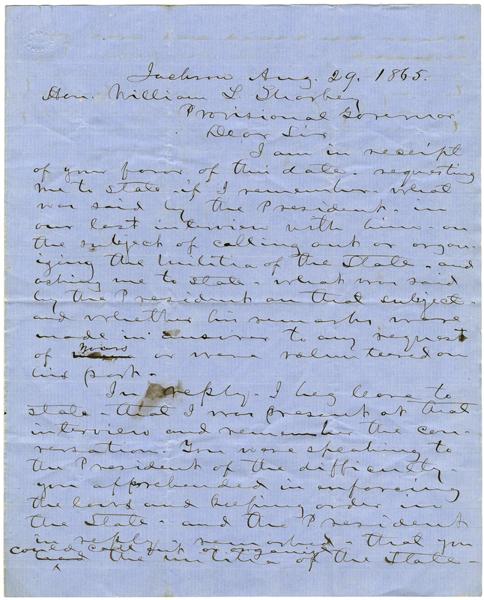 Jackson Aug. 29. 1865.
Hon. William L. Sharkey
Provisional Governor
Dear Sir
I am in receipt
of your favor of this date - requesting
me to state - if I remember - what
was said by the President - in
our last interview with him - on
the subject of calling out or organ-
izing the Militia of the State - and
asking me to state - what was said
by the President on that subject -
and whether his remarks were
made in answer to any request
of yours or were volunteered on
his part -
In reply - I beg leave to
state - that I was present at that
interview and remember the con-
versation. You were speaking to
the President of the difficulty -
you apprehended in enforcing
the laws and keeping order in
the State - and the President
in reply, remarked - that you
could call out or organize
the militia of the State -